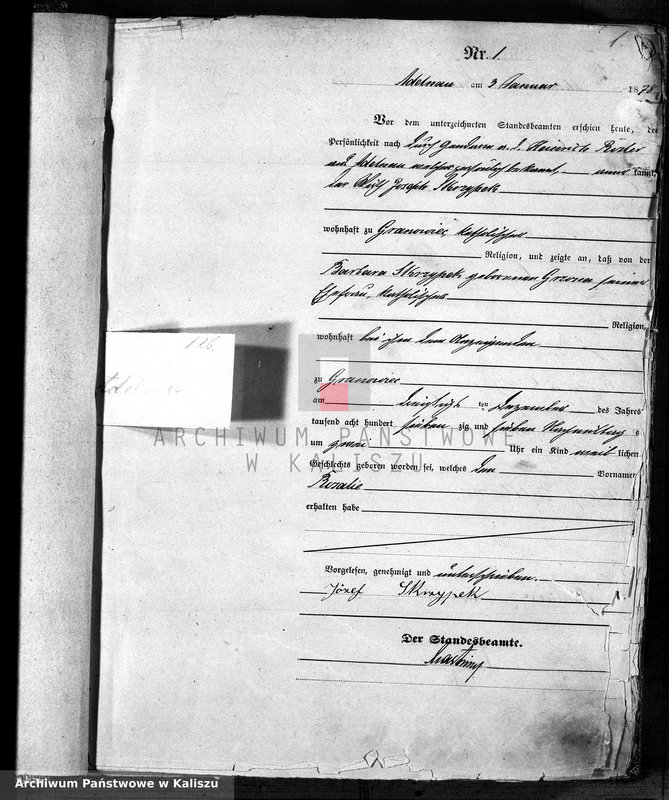 1
Nr. 1.
Adelnau am 3 Januar 1878
Vor dem unterzeichneten Standesbeamten erschien heute, der
Persönlichkeit nach durch Gendarm a. D. Heinrich Röder
aus Adelnau kannt,
der Joseph Skrzypek
wohnhaft zu Granowiec, katholischer
Religion, und zeigte an, daß von der
Barbara Skrzypek geborenen Grzona seiner
Ehefrau, katholischer
Religion,
wohnhaft bei ihm dem Anzeigenden
zu Granowiec
am dreißigsten Dezember des Jahres
tausend acht hundert sieben zig und sieben Nachmittags
um zwei Uhr ein Kind weib lichen
Geschlechts geboren worden sei, welches den Vornamen
Rosalie
erhalten habe
Vorgelesen, genehmigt und unterschrieben.
Józef Skrzypek
Der Standesbeamte.
126.
ARCHIWUM PAŃSTWOWE
W KALISZU
Archiwum Państwowe w Kaliszu